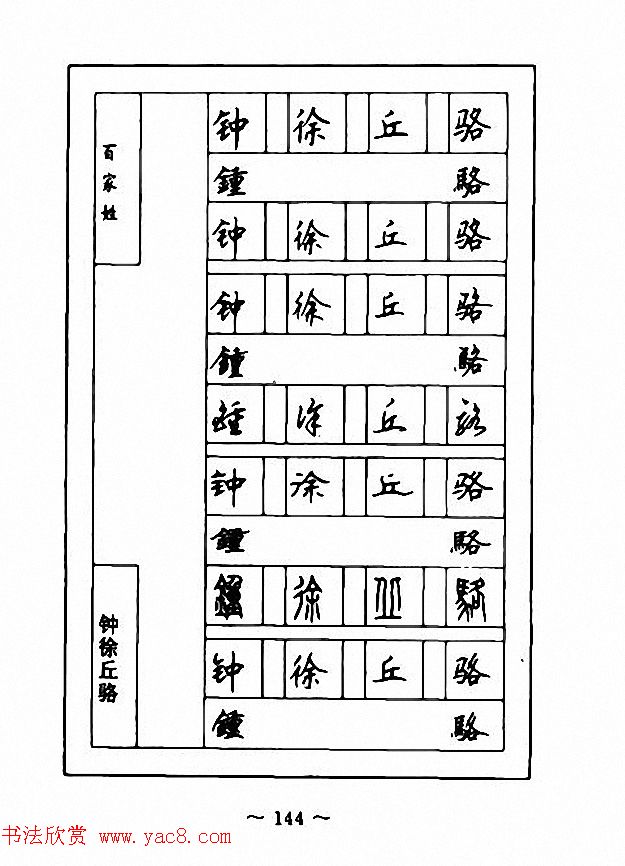 百家姓
钟徐丘骆
钟 徐 丘 骆
鍾 駱
钟 徐 丘 骆
钟 徐 丘 骆
鍾 駱
鍾 徐 丘 骆
钟 徐 丘 骆
鍾 駱
鍾 徐 丘 駱
钟 徐 丘 骆
鍾 駱
~ 144 ~
书法欣赏 www.yac8.com